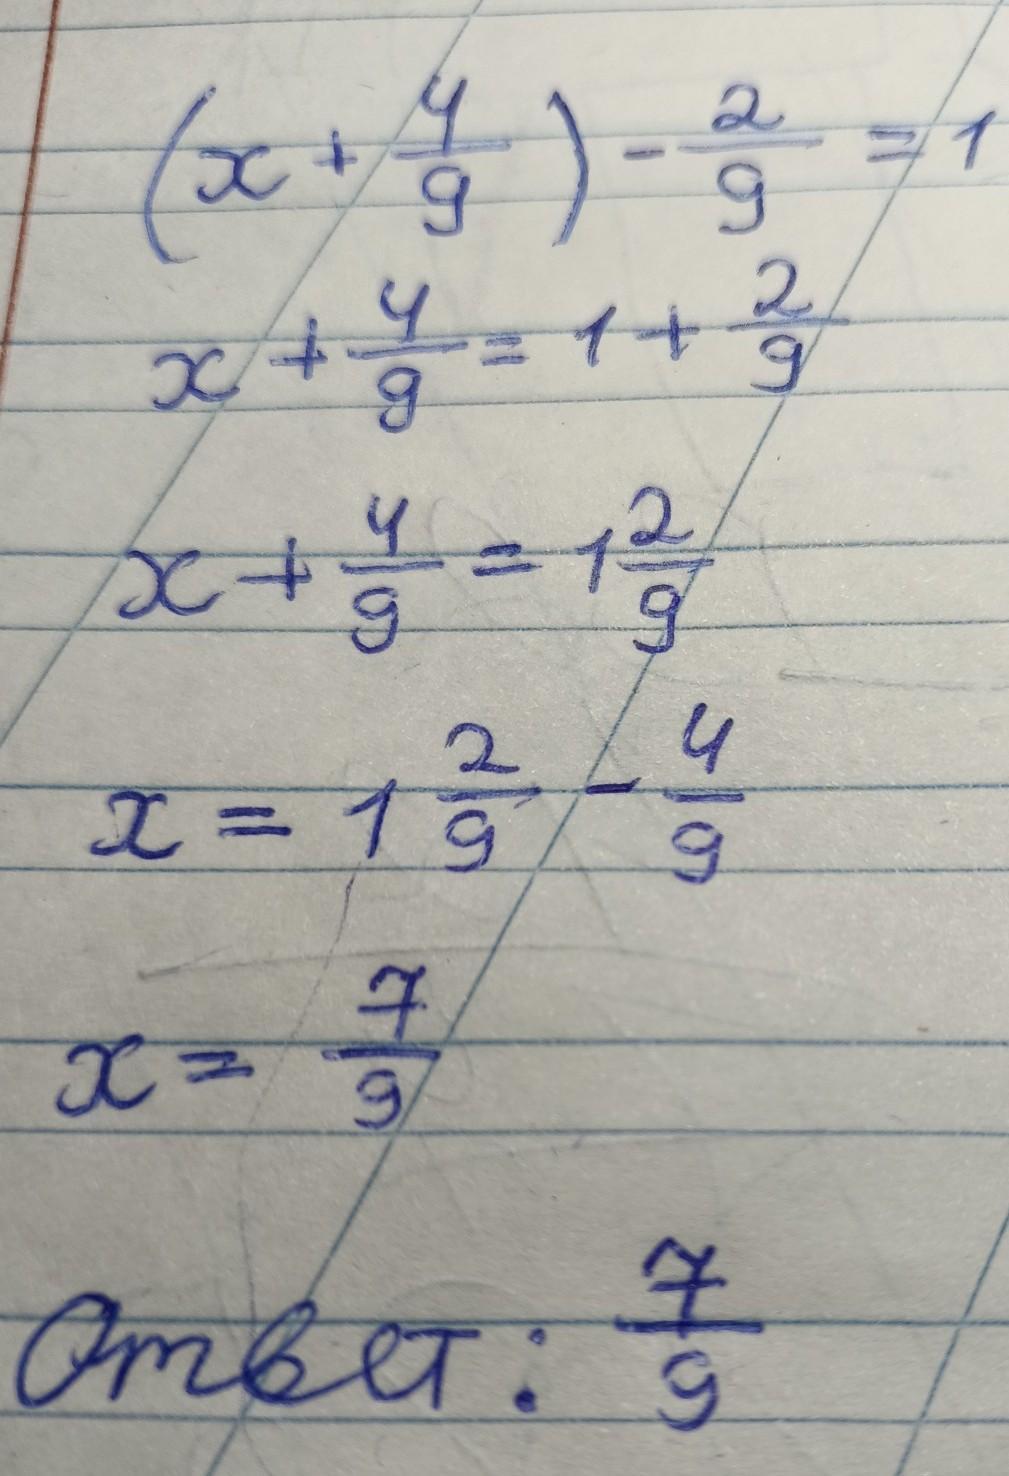 (x + 4/9) - 2/9 = 1
x + 4/9 = 1 + 2/9
x + 4/9 = 1 2/9
x = 1 2/9 - 4/9
x = 7/9
Ответ: 7/9